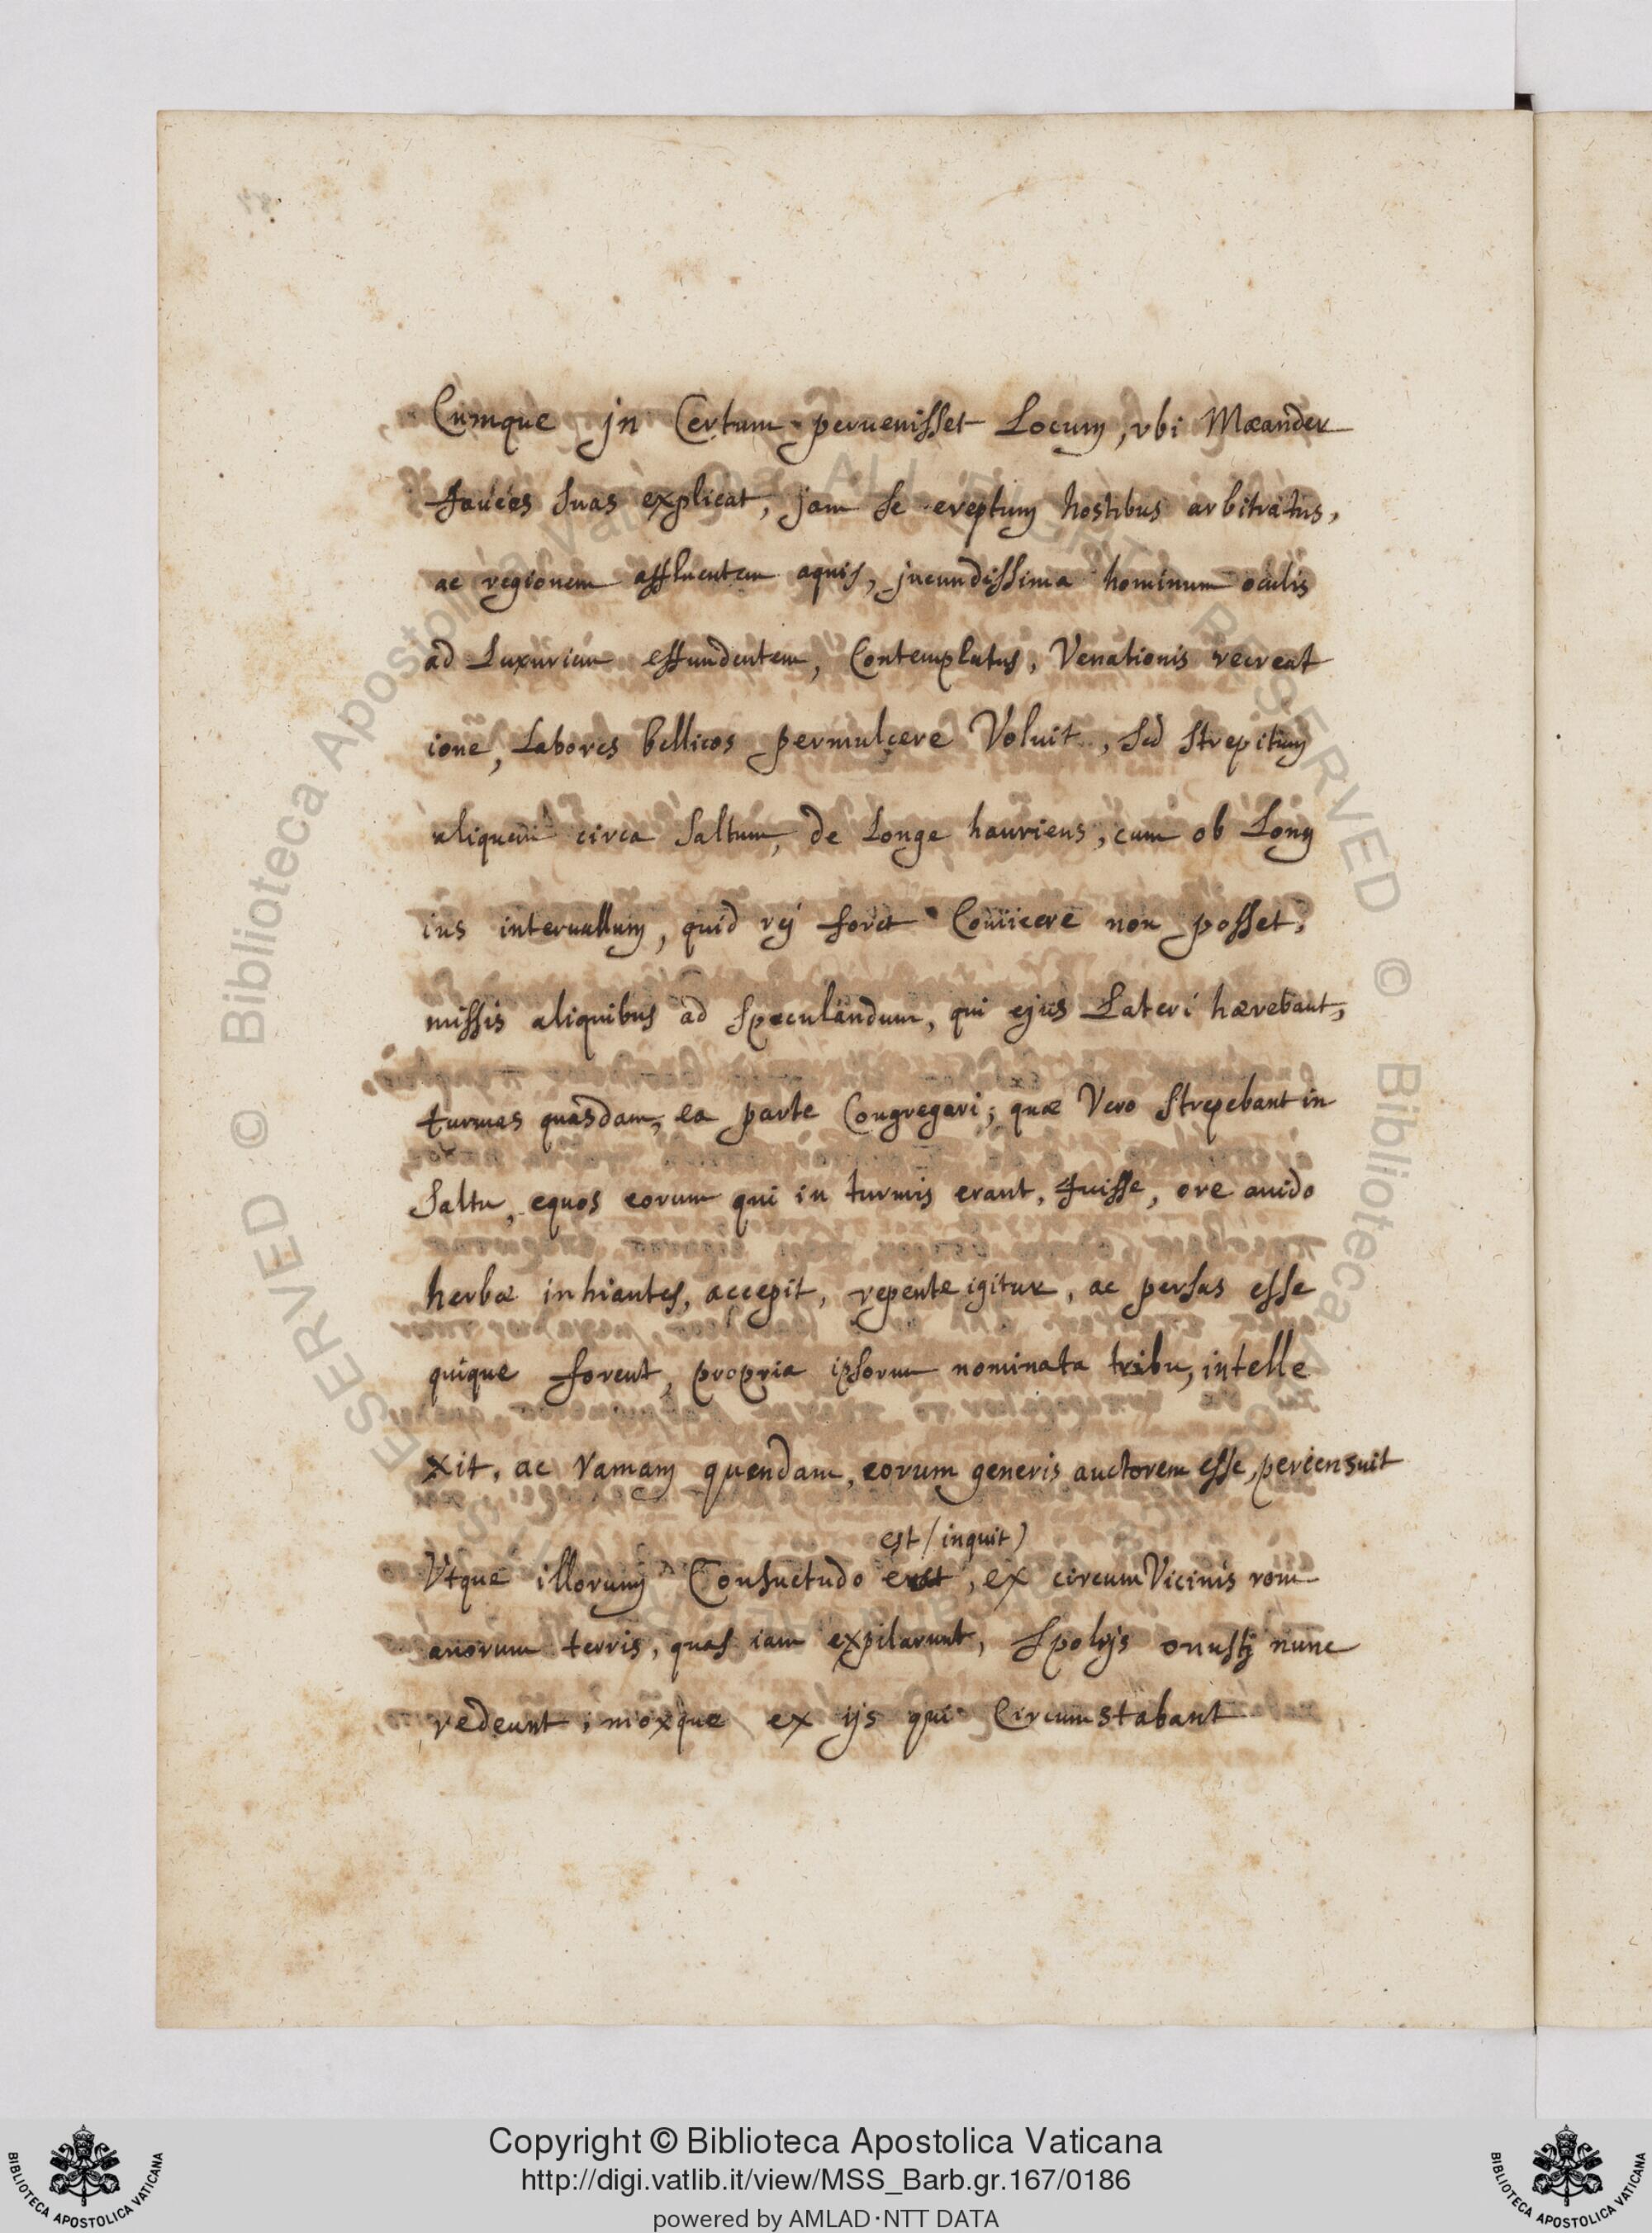 Cumque jn Certum peruenisset Locum, vbi Mæander
fauces suas explicat, jam se ereptum hostibus arbitratus,
ac regionem affluentem aquis, jucundissima hominum oculis
ad Luxuriam effundentem, Contemplatus, Venationis recreat
ione, Labores bellicos permulcere Voluit, sed strepitum
aliquem circa saltum, de Longe hauriens, cum ob Long
ius interuallum, quid rej foret Coniicere non posset,
missis aliquibus ad speculandum, qui ejus Lateri hærebant,
turmas quasdam, ea parte Congregari; quæ Vero strepebant in
saltu, equos eorum qui in turmis erant, fuisse, ore auido
herbæ inhiantes, accepit, repente igitur, ac persas esse
quique forent, propria ipsorum nominata tribu, intelle
xit, ac Vamam quendam, eorum generis auctorem esse, percensuit
est (inquit)
Vtque illorum Consuetudo erat, ex circumVicinis rom
anorum terris, quas iam expilarunt, spolijs onustj nunc
redeunt; moxque ex ijs qui Circumstabant
Copyright © Biblioteca Apostolica Vaticana
http://digi.vatlib.it/view/MSS_Barb.gr.167/0186
powered by AMLAD·NTT DATA